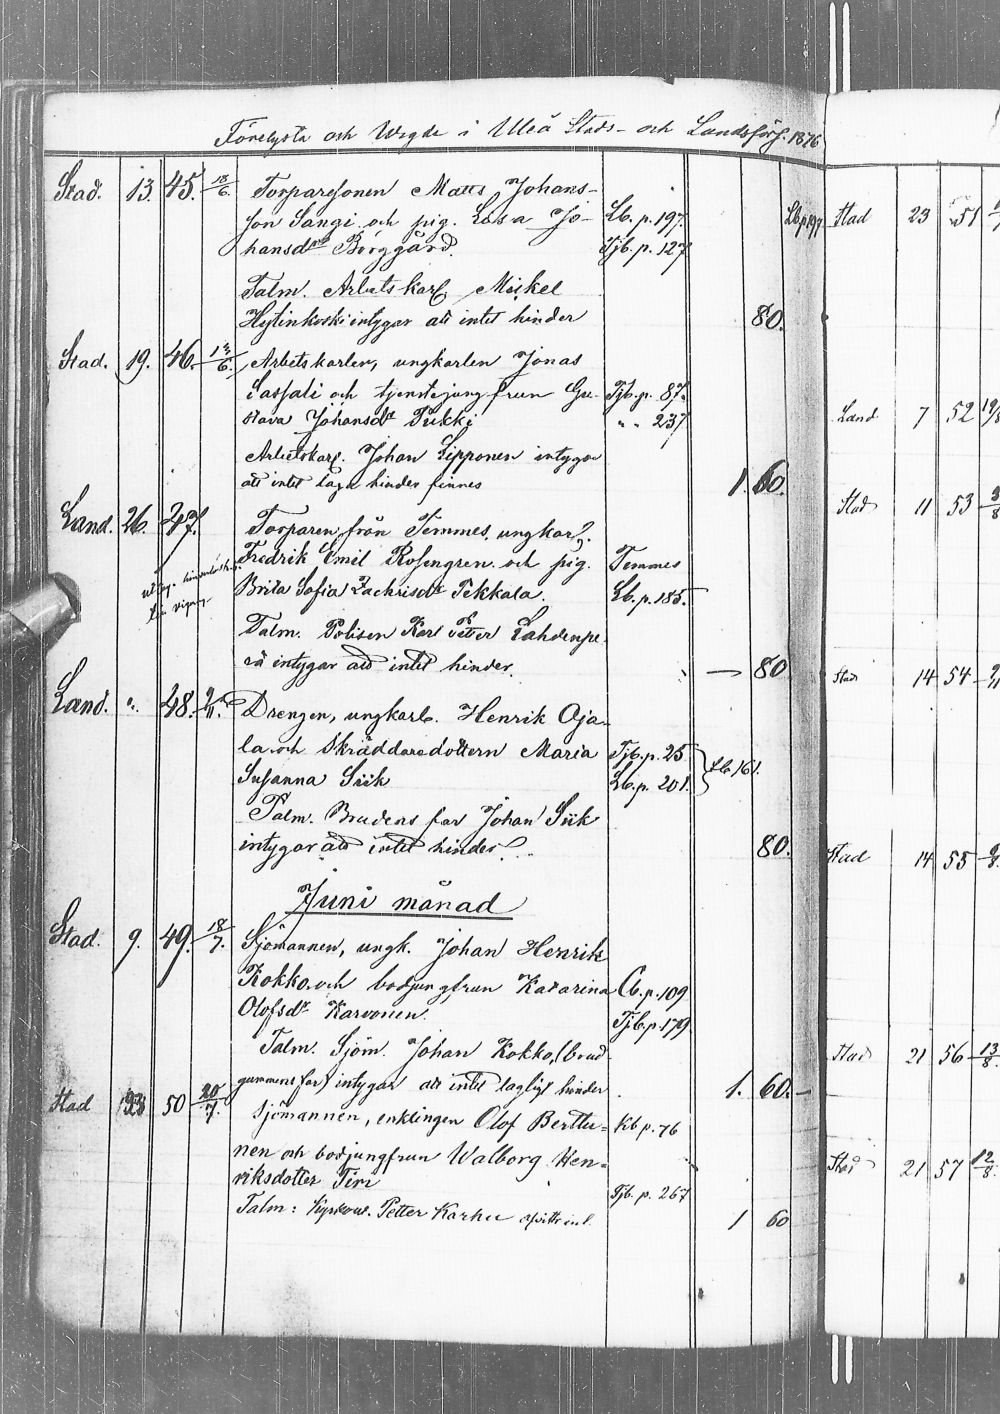 Förelysta och Wigde i Uleå Stads- och Landsförs. 1876
Stad. 13. 45. 18/6. Torparesonen Matts Johans-
son Sangi och pig. Lovisa Jo- Lb. p. 197. Lb p 197
hansdotter Borggård. Tjb. p. 127
Talm. Arbetskarl Mickel
intygar att intet hinder 80.
Stad. 19. 46. /6. Arbetskarlen, ungkarlen Jonas
och tjenstejungfrun Gu- Tjb. p. 87.
stava Johansdr Pukki " " 237
Arbetskarl. Johan Lipponen intygar
att intet laga hinder finnes 1. 60.
Land. 26. 47. Torparen från Temmes, ungkarl.
Fredrik Emil Rosengren och pig. Temmes
Brita Sofia Zachrisdr Pekkala. Lb. p. 185.
Talm. Polisen Karl Petter Lahdenpe-
rä intygar att intet hinder. — 80
Land. ". 48. 2/11. Drengen, ungkarl. Henrik Oja-
la och Skräddaredottern Maria Tjb. p. 25
Susanna Siik Lb. p. 201. Lb 161.
Talm. Brudens far Johan Siik
intygar att intet hinder. 80.
Juni månad
Stad. 9. 49. 18/7. Sjömannen, ungk. Johan Henrik
Kokko och bodjungfrun Katarina Cb. p. 109
Olofsdr Karvonen. Tjb. p. 179
Talm. Sjöm. Johan Kokko, (brud-
gummens far) intygar att intet lagligt hinder 1. 60. —
Stad 23 50 20/7. Sjömannen, enklingen Olof Berttu- Kb p. 76
nen och bodjungfrun Walborg Hen-
riksdotter Tiri Tjb. p. 267
Talm: Petter Karhu 1 60
Stad 23 51
Land 7 52 19/8
Stad 11 53 3/8
Stad 14 54
Stad 14 55
Stad 21 56 13/8
Stad 21 57 12/8